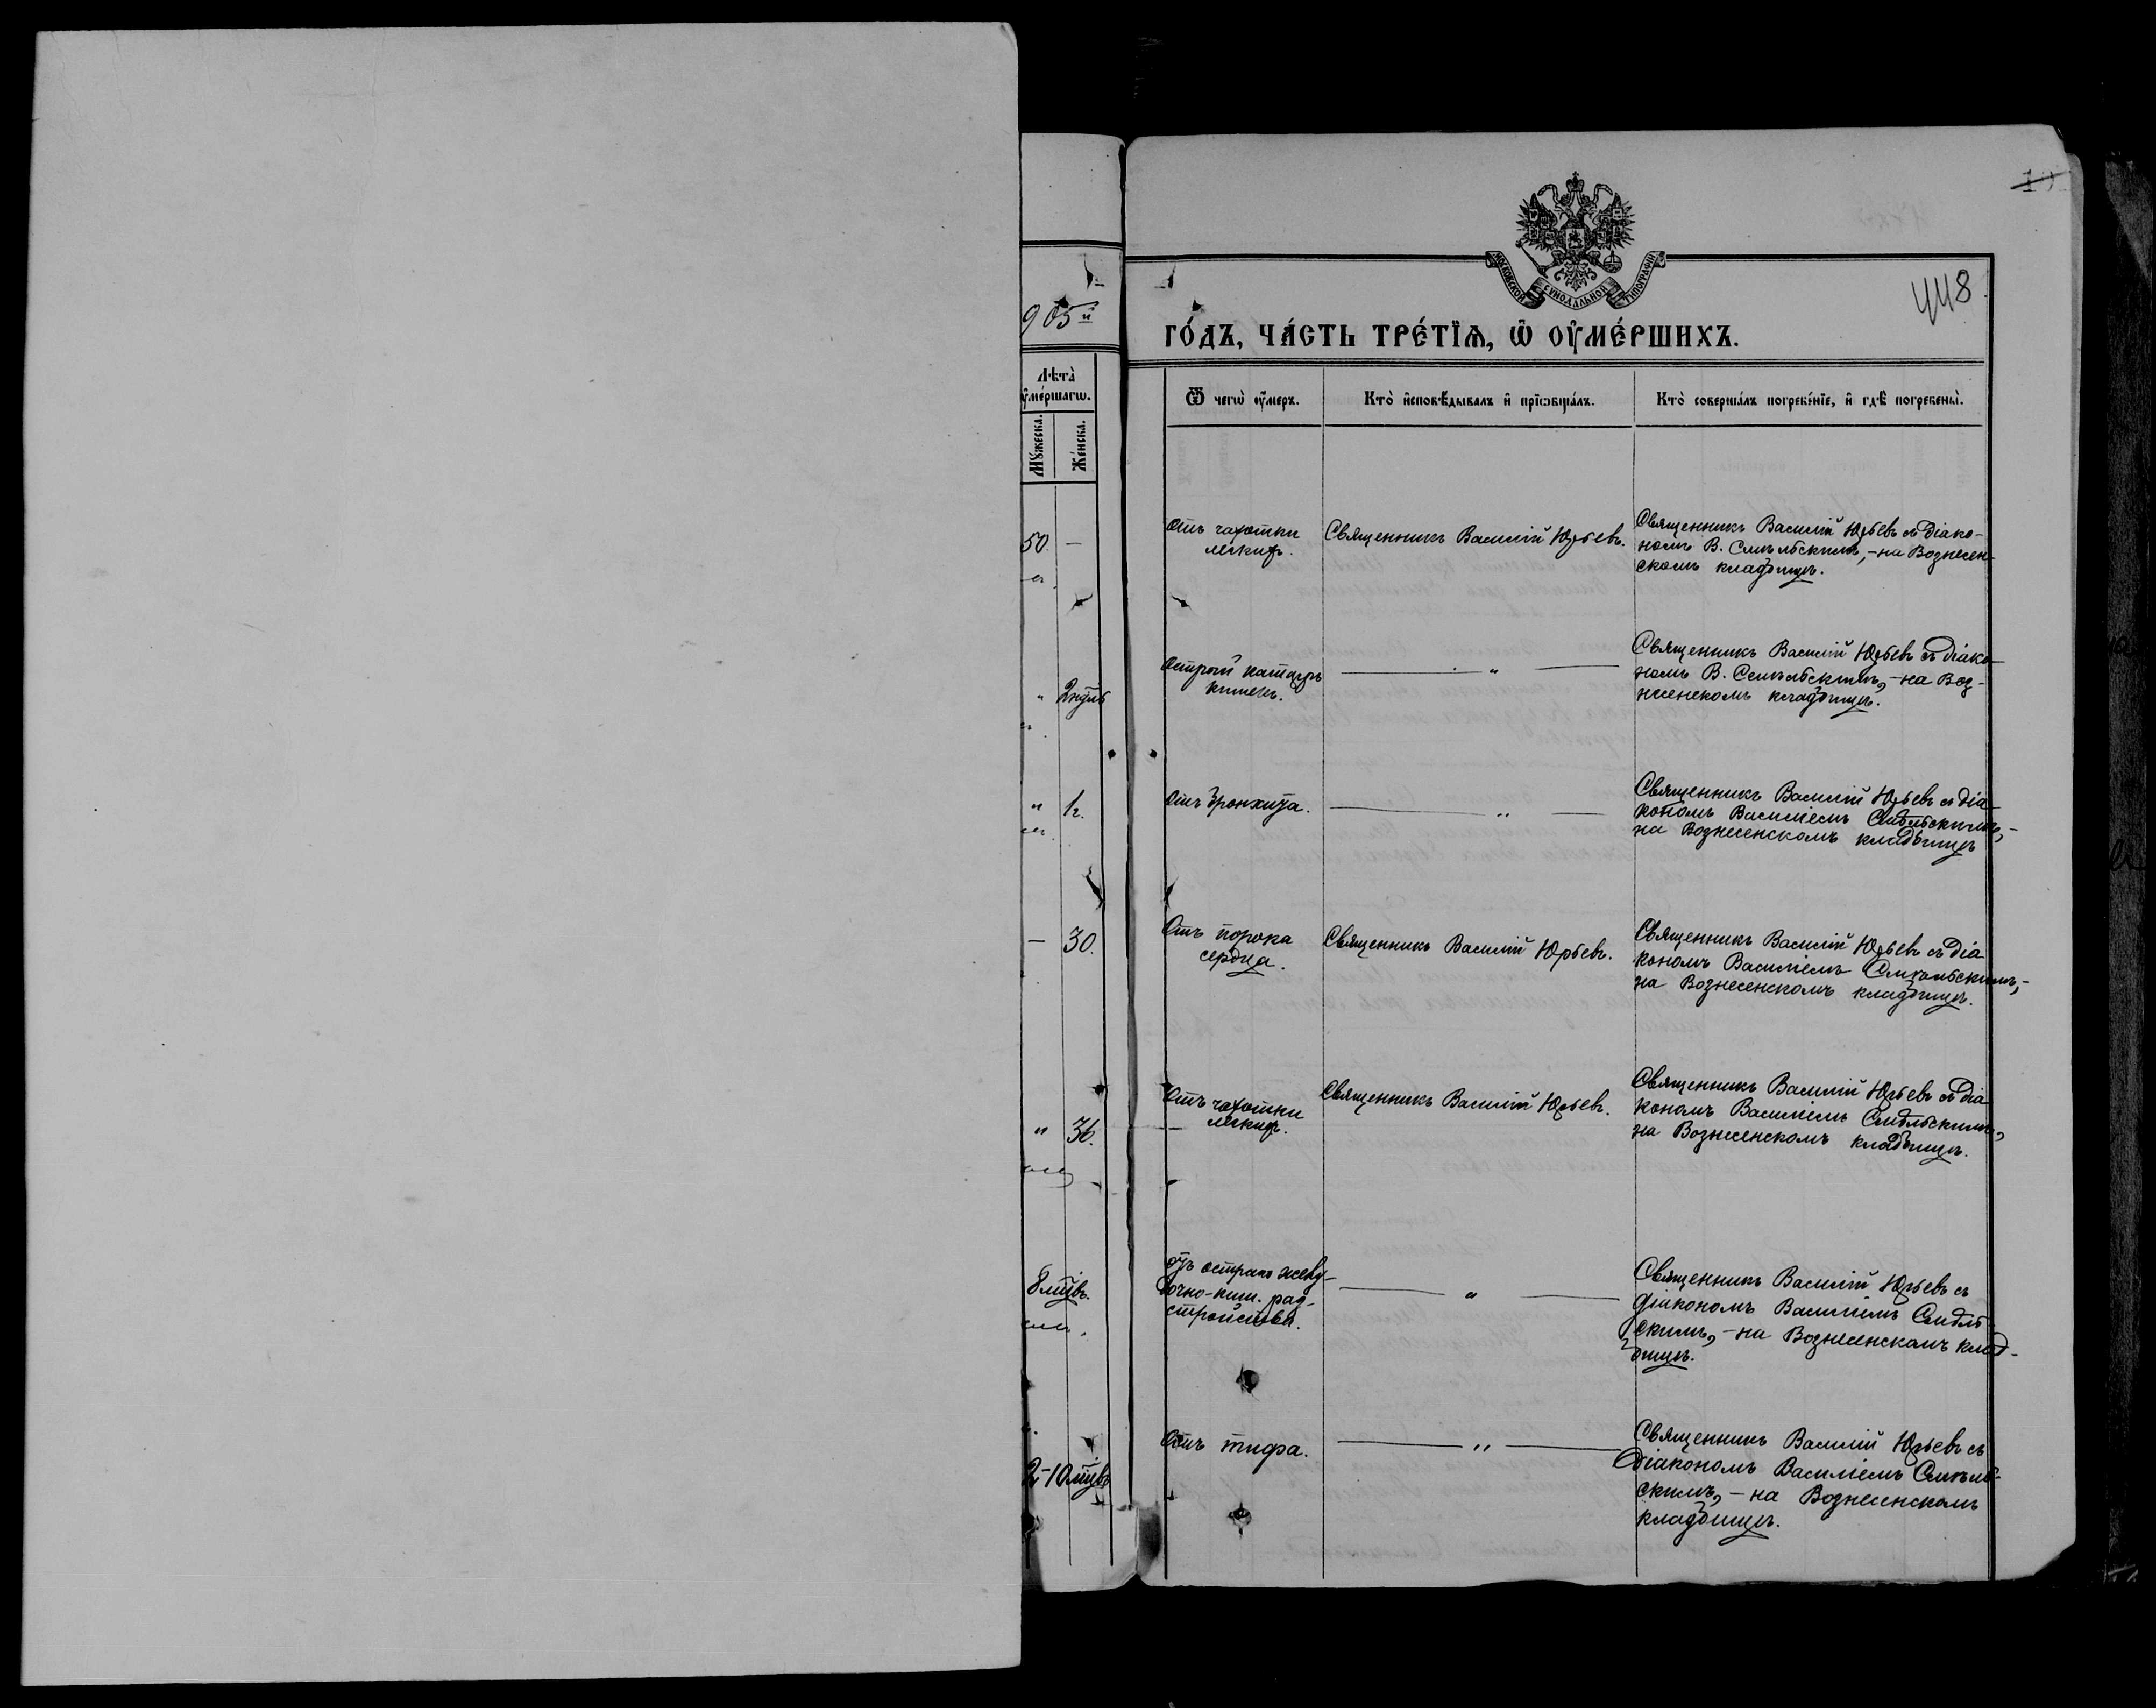 10
МОСКОВСКОЙ СУНОДАЛЬНОЙ ТИПОГРАФІИ
448
905й
го́дъ, ча́сть тре́тїѧ, ѡ҆ ᲂу҆ме́ршихъ.
Лѣта̀
ᲂу҆ме́ршагѡ.
Му́жеска.
Же́нска.
Ѿ чегѡ̀ ᲂу҆́меръ.
Кто̀ и҆сповѣ́дывалъ и҆ прїѡбща́лъ.
Кто̀ соверша́лъ погребе́нїе, и҆ гдѣ̀ погребены̀.
50 —
Отъ чахотки
легкихъ.
Священникъ Василій Юрьевъ.
Священникъ Василій Юрьевъ съ діако-
номъ В. , — на Вознесен-
скомъ кладбищѣ.
" 2 ндѣл
Острый катаръ
кишекъ.
— " —
Священникъ Василій Юрьевъ съ діако-
номъ В. , — на Воз-
несенскомъ кладбищѣ.
" 1г.
Отъ бронхита.
— " —
Священникъ Василій Юрьевъ съ діа-
кономъ Василіемъ , —
на Вознесенскомъ кладбищѣ
— 30.
Отъ порока
сердца.
Священникъ Василій Юрьевъ.
Священникъ Василій Юрьевъ съ діа
кономъ Василіемъ , —
на Вознесенскомъ кладбищѣ.
" 36.
Отъ чахотки
легкихъ.
Священникъ Василій Юрьевъ.
Священникъ Василій Юрьевъ съ діа
кономъ Василіемъ ,
на Вознесенскомъ кладбищѣ.
8 мцвъ.
Отъ остраго желу-
дочно-киш. раз-
стройства.
— " —
Священникъ Василій Юрьевъ съ
діакономъ Василіемъ
скимъ, — на Вознесенскомъ клад-
бищѣ.
2-10 мцвъ
Отъ тифа.
— " —
Священникъ Василій Юрьевъ съ
Діакономъ Василіемъ
скимъ, — на Вознесенскомъ
кладбищѣ.